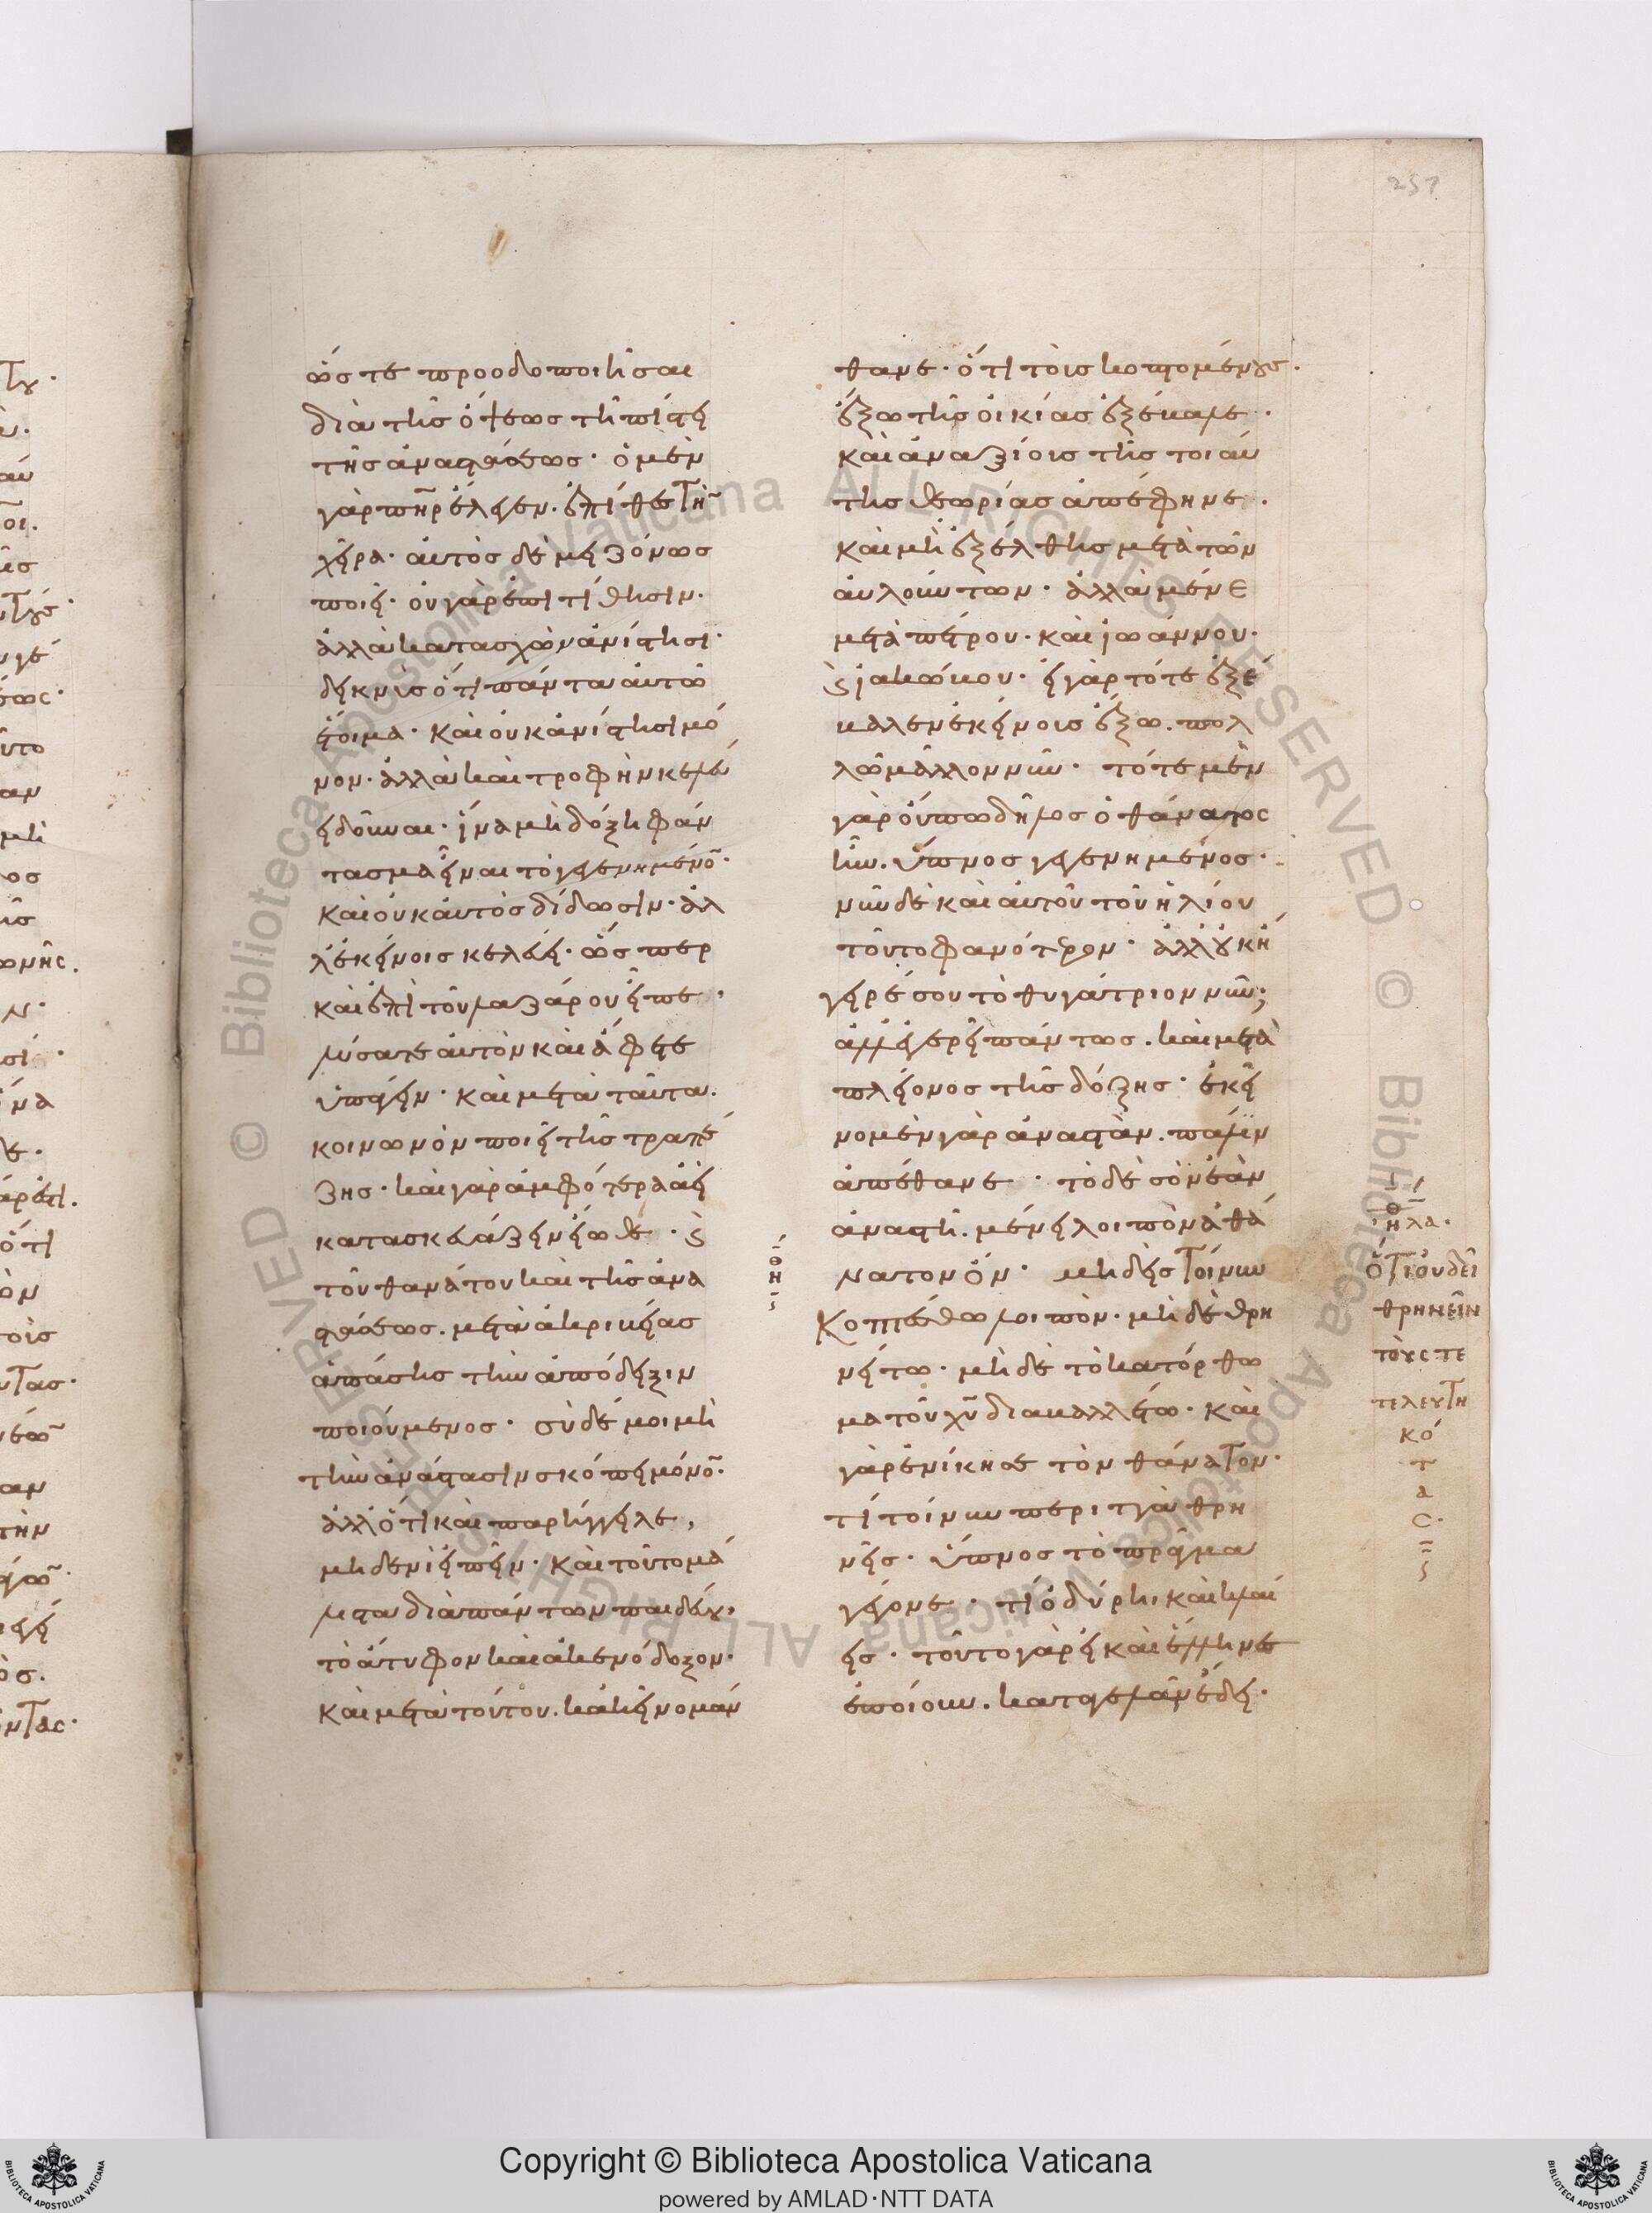 257
ὥστε προοδοποιῆσαι
διὰ τῆς ὄψεως τῇ πίστει
τῆς ἀναστάσεως· ὁ μὲν
γὰρ πῆρ ἔλεγεν. ἐπίθες τὴ
χεῖρα· αὐτὸς δὲ μειζόνως
ποιεῖ· οὐ γὰρ ἐπιτίθησιν.
ἀλλὰ κατασχὼν ἀνίστησι·
δεικνὺς ὅτι πάντα αὐτῶ
ἕτοιμα· καὶ οὐκ ἀνίστησι μό
νον· ἀλλὰ καὶ τροφὴν κελεύ
ει δοῦναι· ἵνα μὴ δόξη φάν
τασμα εἶναι τὸ γεγενημένο·
καὶ οὐκ αὐτὸς δίδωσιν· ἀλ
λ' ἐκείνοις κελεύει· ὥσπερ
καὶ ἐπὶ τοῦ λαζάρου εἶπε·
λύσατε αὐτὸν καὶ ἄφετε
ὑπάγειν· καὶ μετὰ ταῦτα.
κοινωνὸν ποιεῖ τῆς τραπέ
ζης· καὶ γὰρ ἀμφότερα ἀεὶ
κατασκευάζειν εἴωθε· ϗ
τοῦ θανάτου καὶ τῆς ἀνα
στάσεως. μετὰ ἀκριβείας
ἁπάσης τὴν ἀπόδειξιν
ποιούμενος· σὺ δέ μοι μὴ
τὴν ἀνάστασιν σκόπει μόνο·
ἀλλ' ὅτι καὶ παρήγγειλε,
μηδενὶ εἰπεῖν· καὶ τοῦτο μά
λιστα διὰ πάντων παιδεύου,
τὸ ἄτυφον καὶ ἀκενόδοξον·
καὶ μετὰ τούτου. κἀκεῖνο μάν
θανε· ὅτι τοὺς κοπτομένους.
ἔξω τῆς οἰκίας ἐξέβαλε·
καὶ ἀναξίους τῆς τοιαύ
της θεωρίας ἀπέφηνε.
καὶ μὴ ἐξέλθης μετὰ τῶν
αὐλούντων· ἀλλὰ μένε
μετὰ πέτρου· καὶ ἰωάννου·
ϗ ἰακώβου· εἰ γὰρ τότε ἐξέ
βαλεν ἐκείνους ἔξω. πολ
λῶ μᾶλλον νῦν· τότε μὲν
γὰρ οὔπω δῆλος ὁ θάνατος
ἦν. ὕπνος γεγενημένος·
νῦν δὲ καὶ αὐτοῦ τοῦ ἡλίου
τοῦτο φανότερον· ἀλλ' οὐκ ἤ
γειρέ σου τὸ θυγάτριον νῦν;
ἀλλ' ἐγερεῖ πάντως. καὶ μετὰ
πλείονος τῆς δόξης· ἐκεῖ
νο μὲν γὰρ ἀναστὰν. πάλιν
ἀπέθανε· τὸ δὲ σὸν ἐὰν
ἀναστῆ. μένει λοιπὸν ἀθά
νατον ὄν· μηδεὶς τοίνυν
κοπτέσθω λοιπὸν· μὴ δὲ θρη
νείτω· μὴ δὲ τὸ κατόρθω
μα τοῦ χυ διαβαλλέτω· καὶ
γὰρ ἐνίκησε τὸν θάνατον·
τί τοίνυν περιττὰ θρη
νεῖς· ὕπνος τὸ πρᾶγμα
γέγονε· τί ὀδύρη. καὶ κλαί
εις· τοῦτο γὰρ εἰ καὶ ἕλληνες
ἐποίουν. καταγελᾶν ἔδει·
ἠθι
ὅτι οὐ δεῖ
θρηνεῖν
τοὺς τε
τελευτη
κό
τ
α
ς·